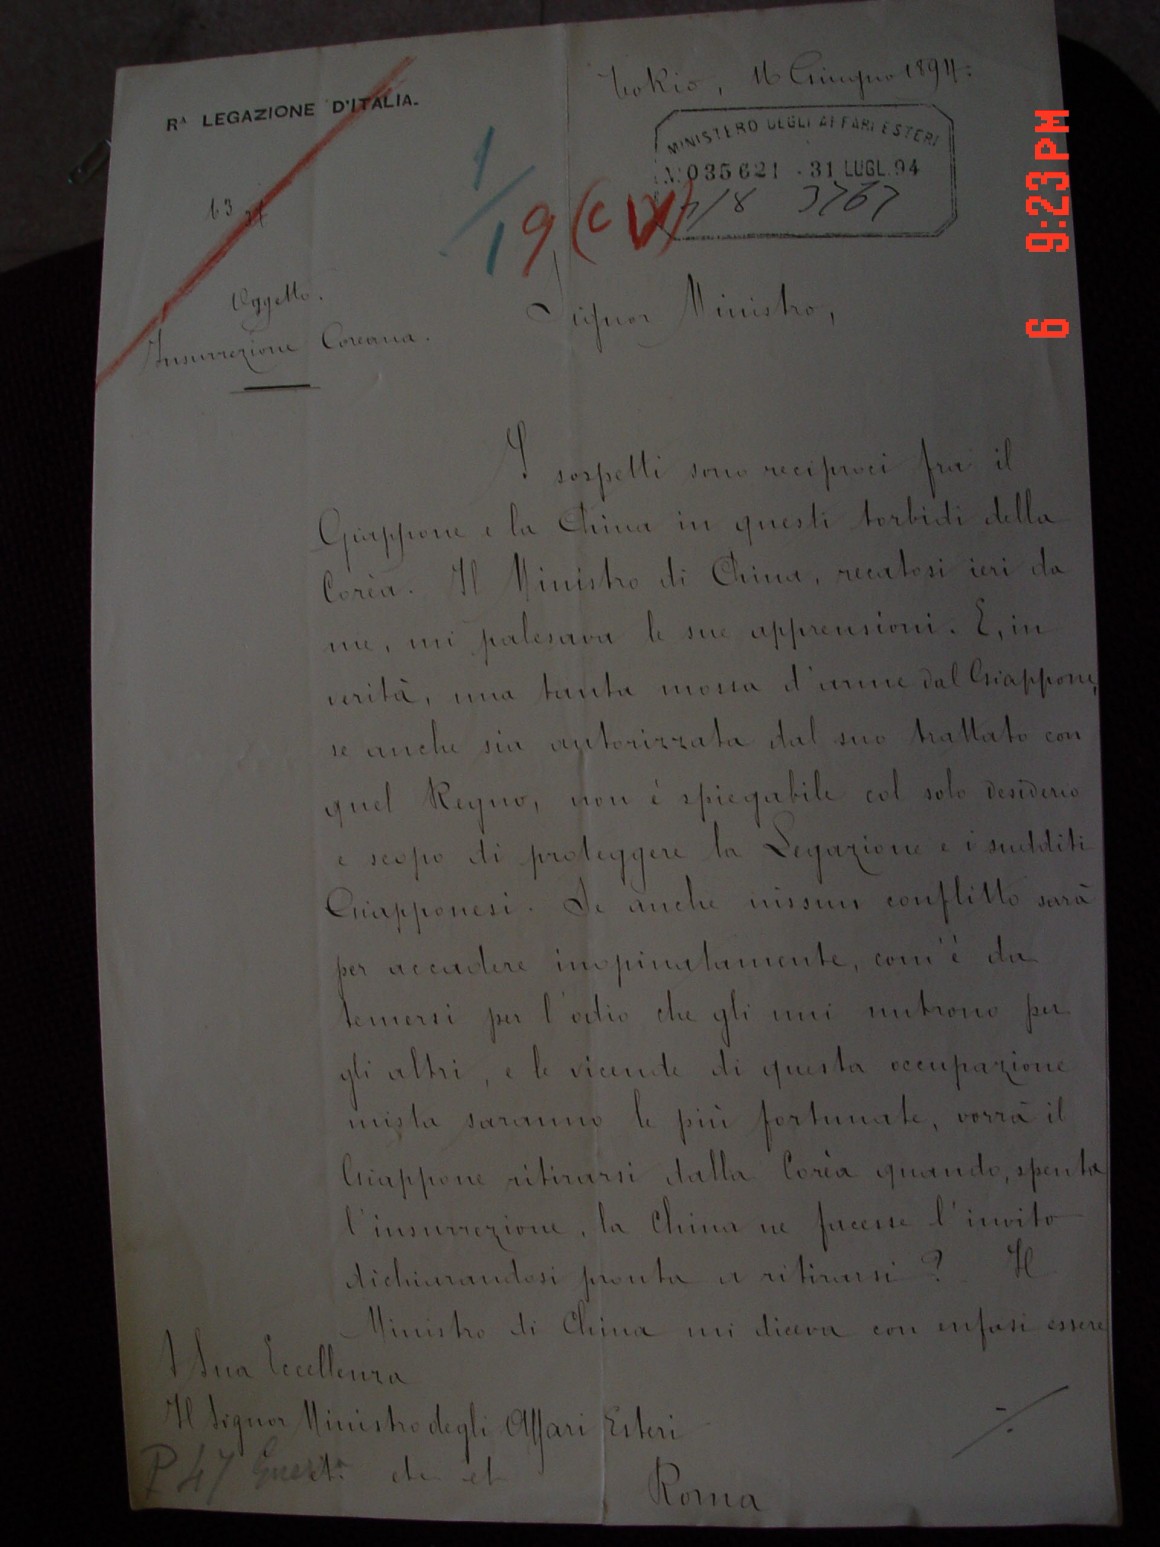 Rᴬ LEGAZIONE D'ITALIA.
Tokio, 16 Giugno 1894.
MINISTERO DEGLI AFFARI ESTERI
N. 035621 - 31 LUGL. 94
3767
63
1/19 (C V)
Oggetto.
Insurrezione Coreana.
Signor Ministro,
I sospetti sono reciproci fra il
Giappone e la China in questi torbidi della
Corèa. Il Ministro di China, recatosi ieri da
me, mi palesava le sue apprensioni. E, in
verità, una tanta mossa d'arme dal Giappone,
se anche sia autorizzata dal suo trattato con
quel Regno, non è spiegabile col solo desiderio
e scopo di proteggere la Legazione e i sudditi
Giapponesi. Se anche nissun conflitto sarà
per accadere inopinatamente, com'è da
temersi per l'odio che gli uni nutrono per
gli altri, e le vicende di questa occupazione
mista saranno le più fortunate, vorrà il
Giappone ritirarsi dalla Corèa quando, spenta
l'insurrezione, la China ne facesse l'invito
dichiarandosi pronta a ritirarsi? Il
Ministro di China mi diceva con enfasi essere
A Sua Eccellenza
Il Signor Ministro degli Affari Esteri
P 47
Roma
9:23 PM
6